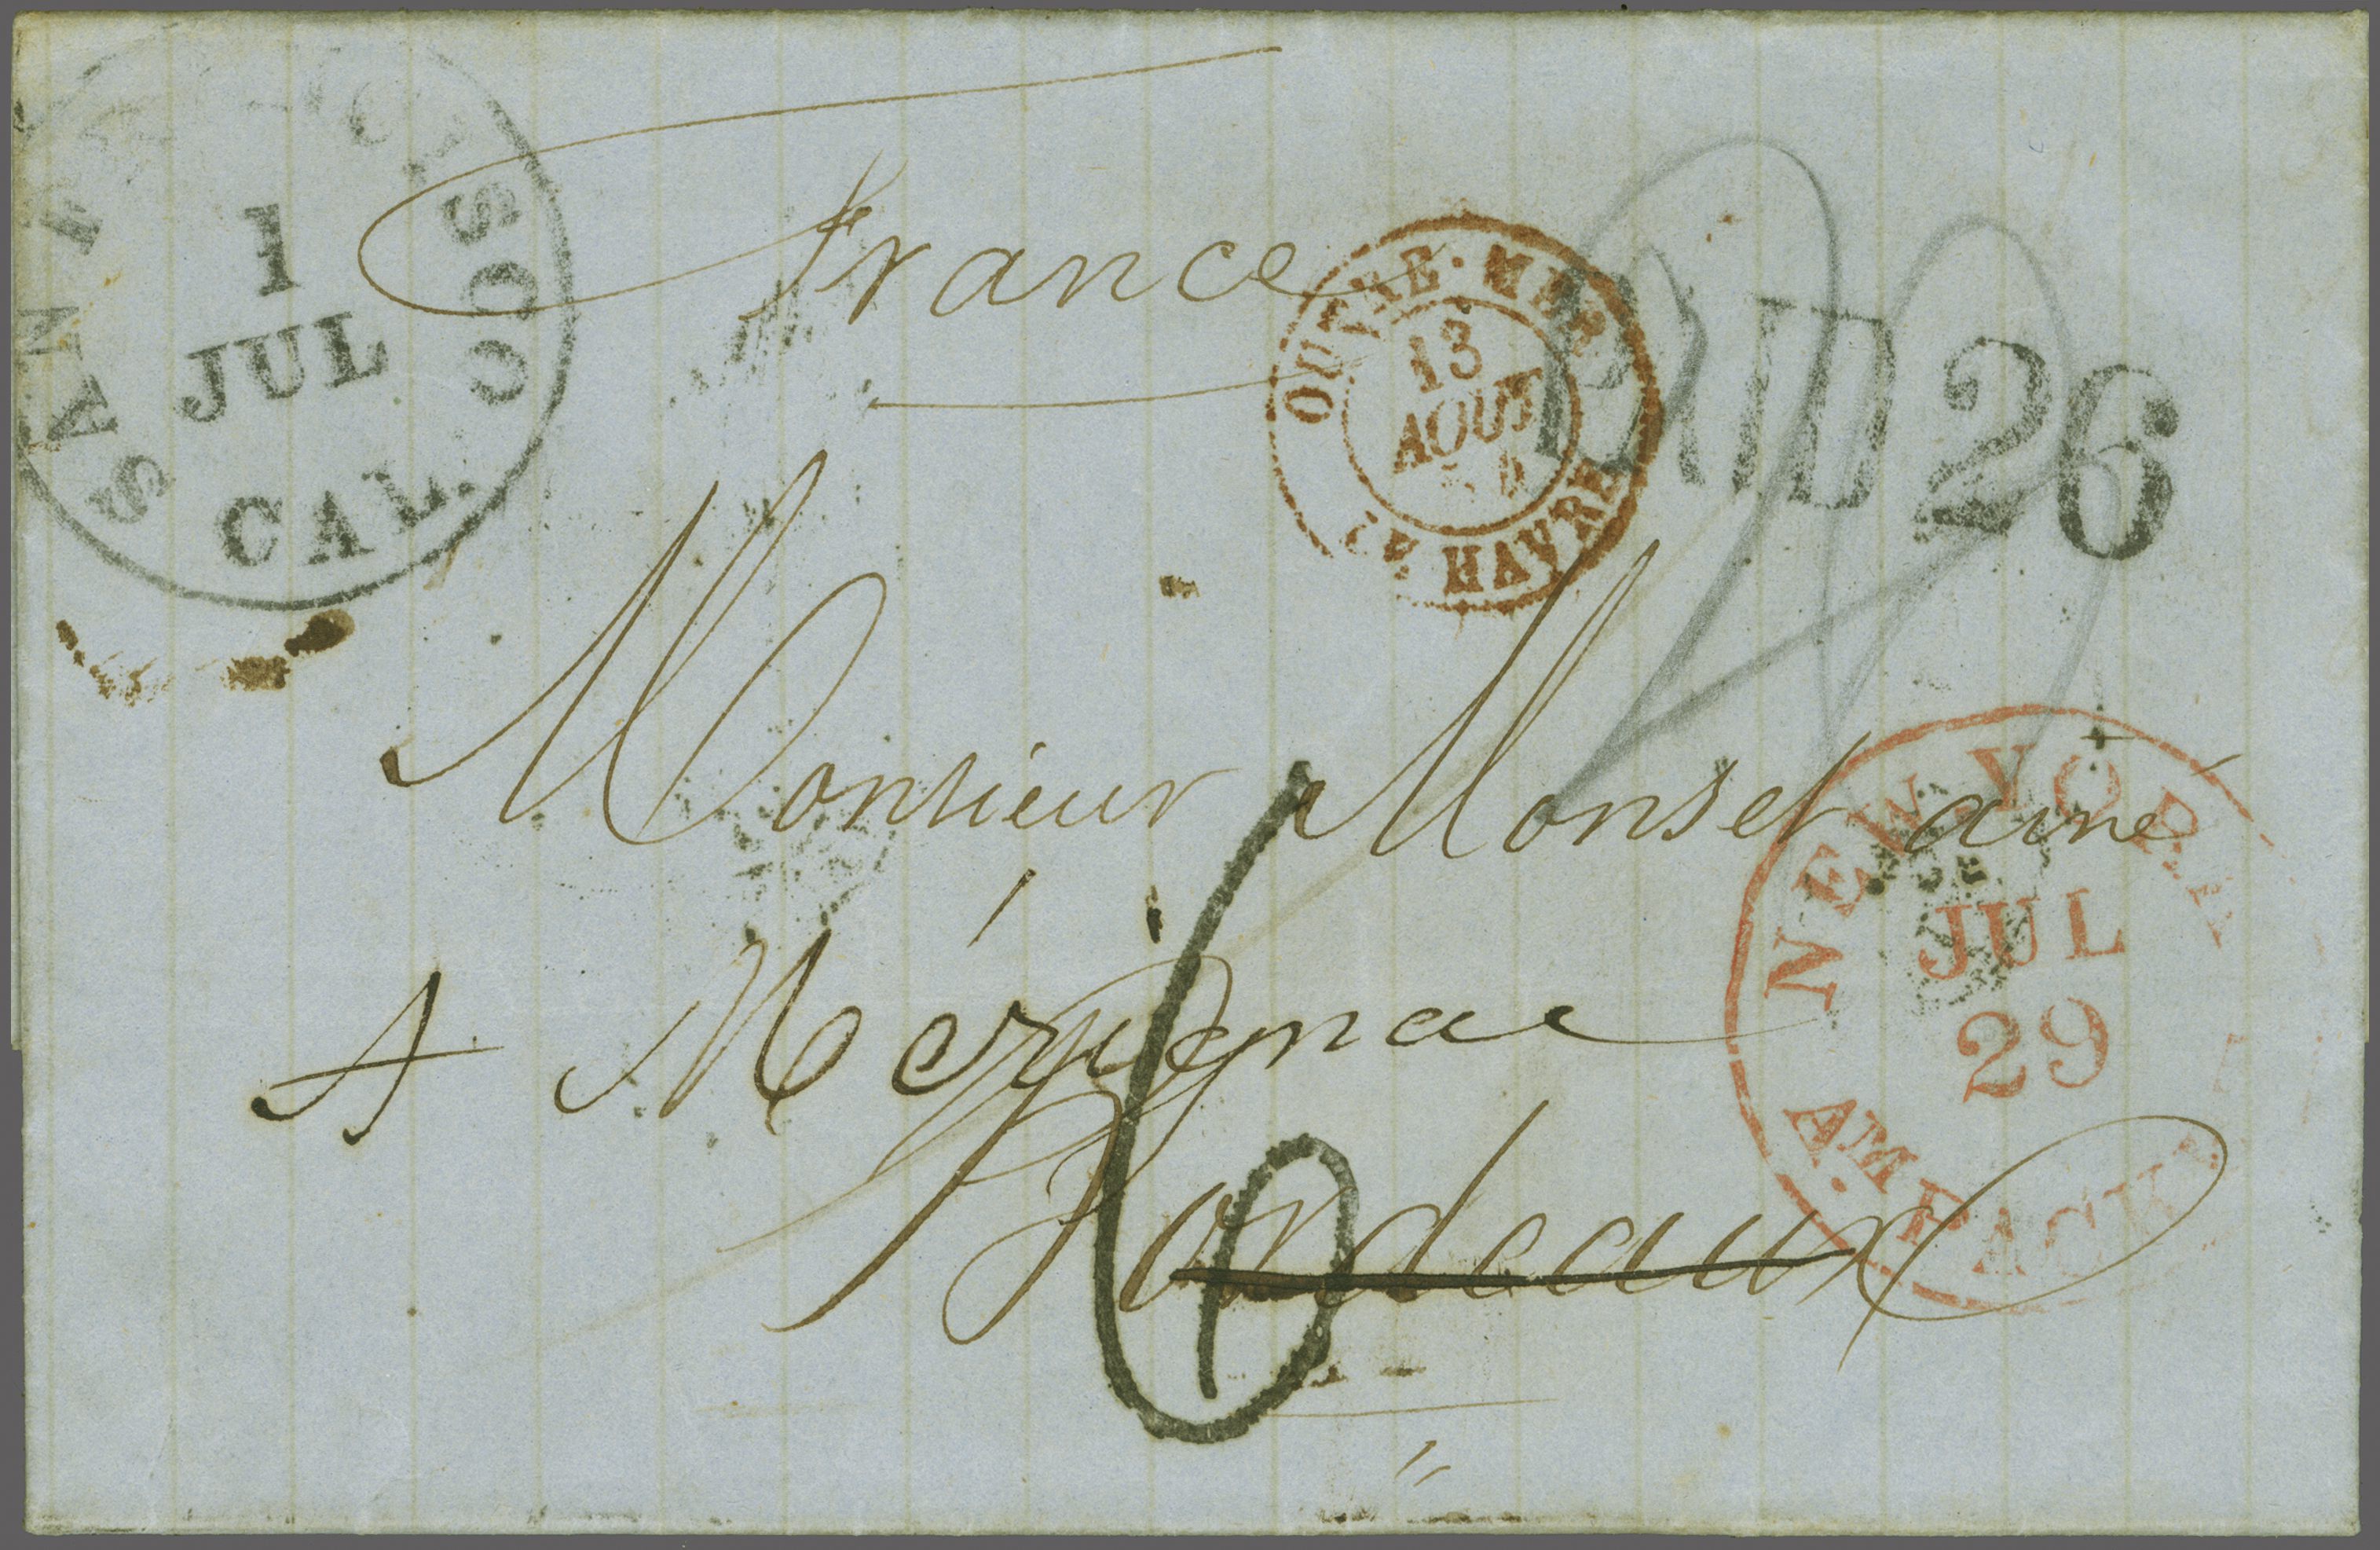 SAN FRANCISCO
1
JUL
CAL.
France
OUTRE·MER
13
AOUT
54
LE HAVRE
PAID 26
Monsieur Monset ainé
A Mérignac
Bordeaux
6
NEW YORK
JUL
29
AM. PACKET